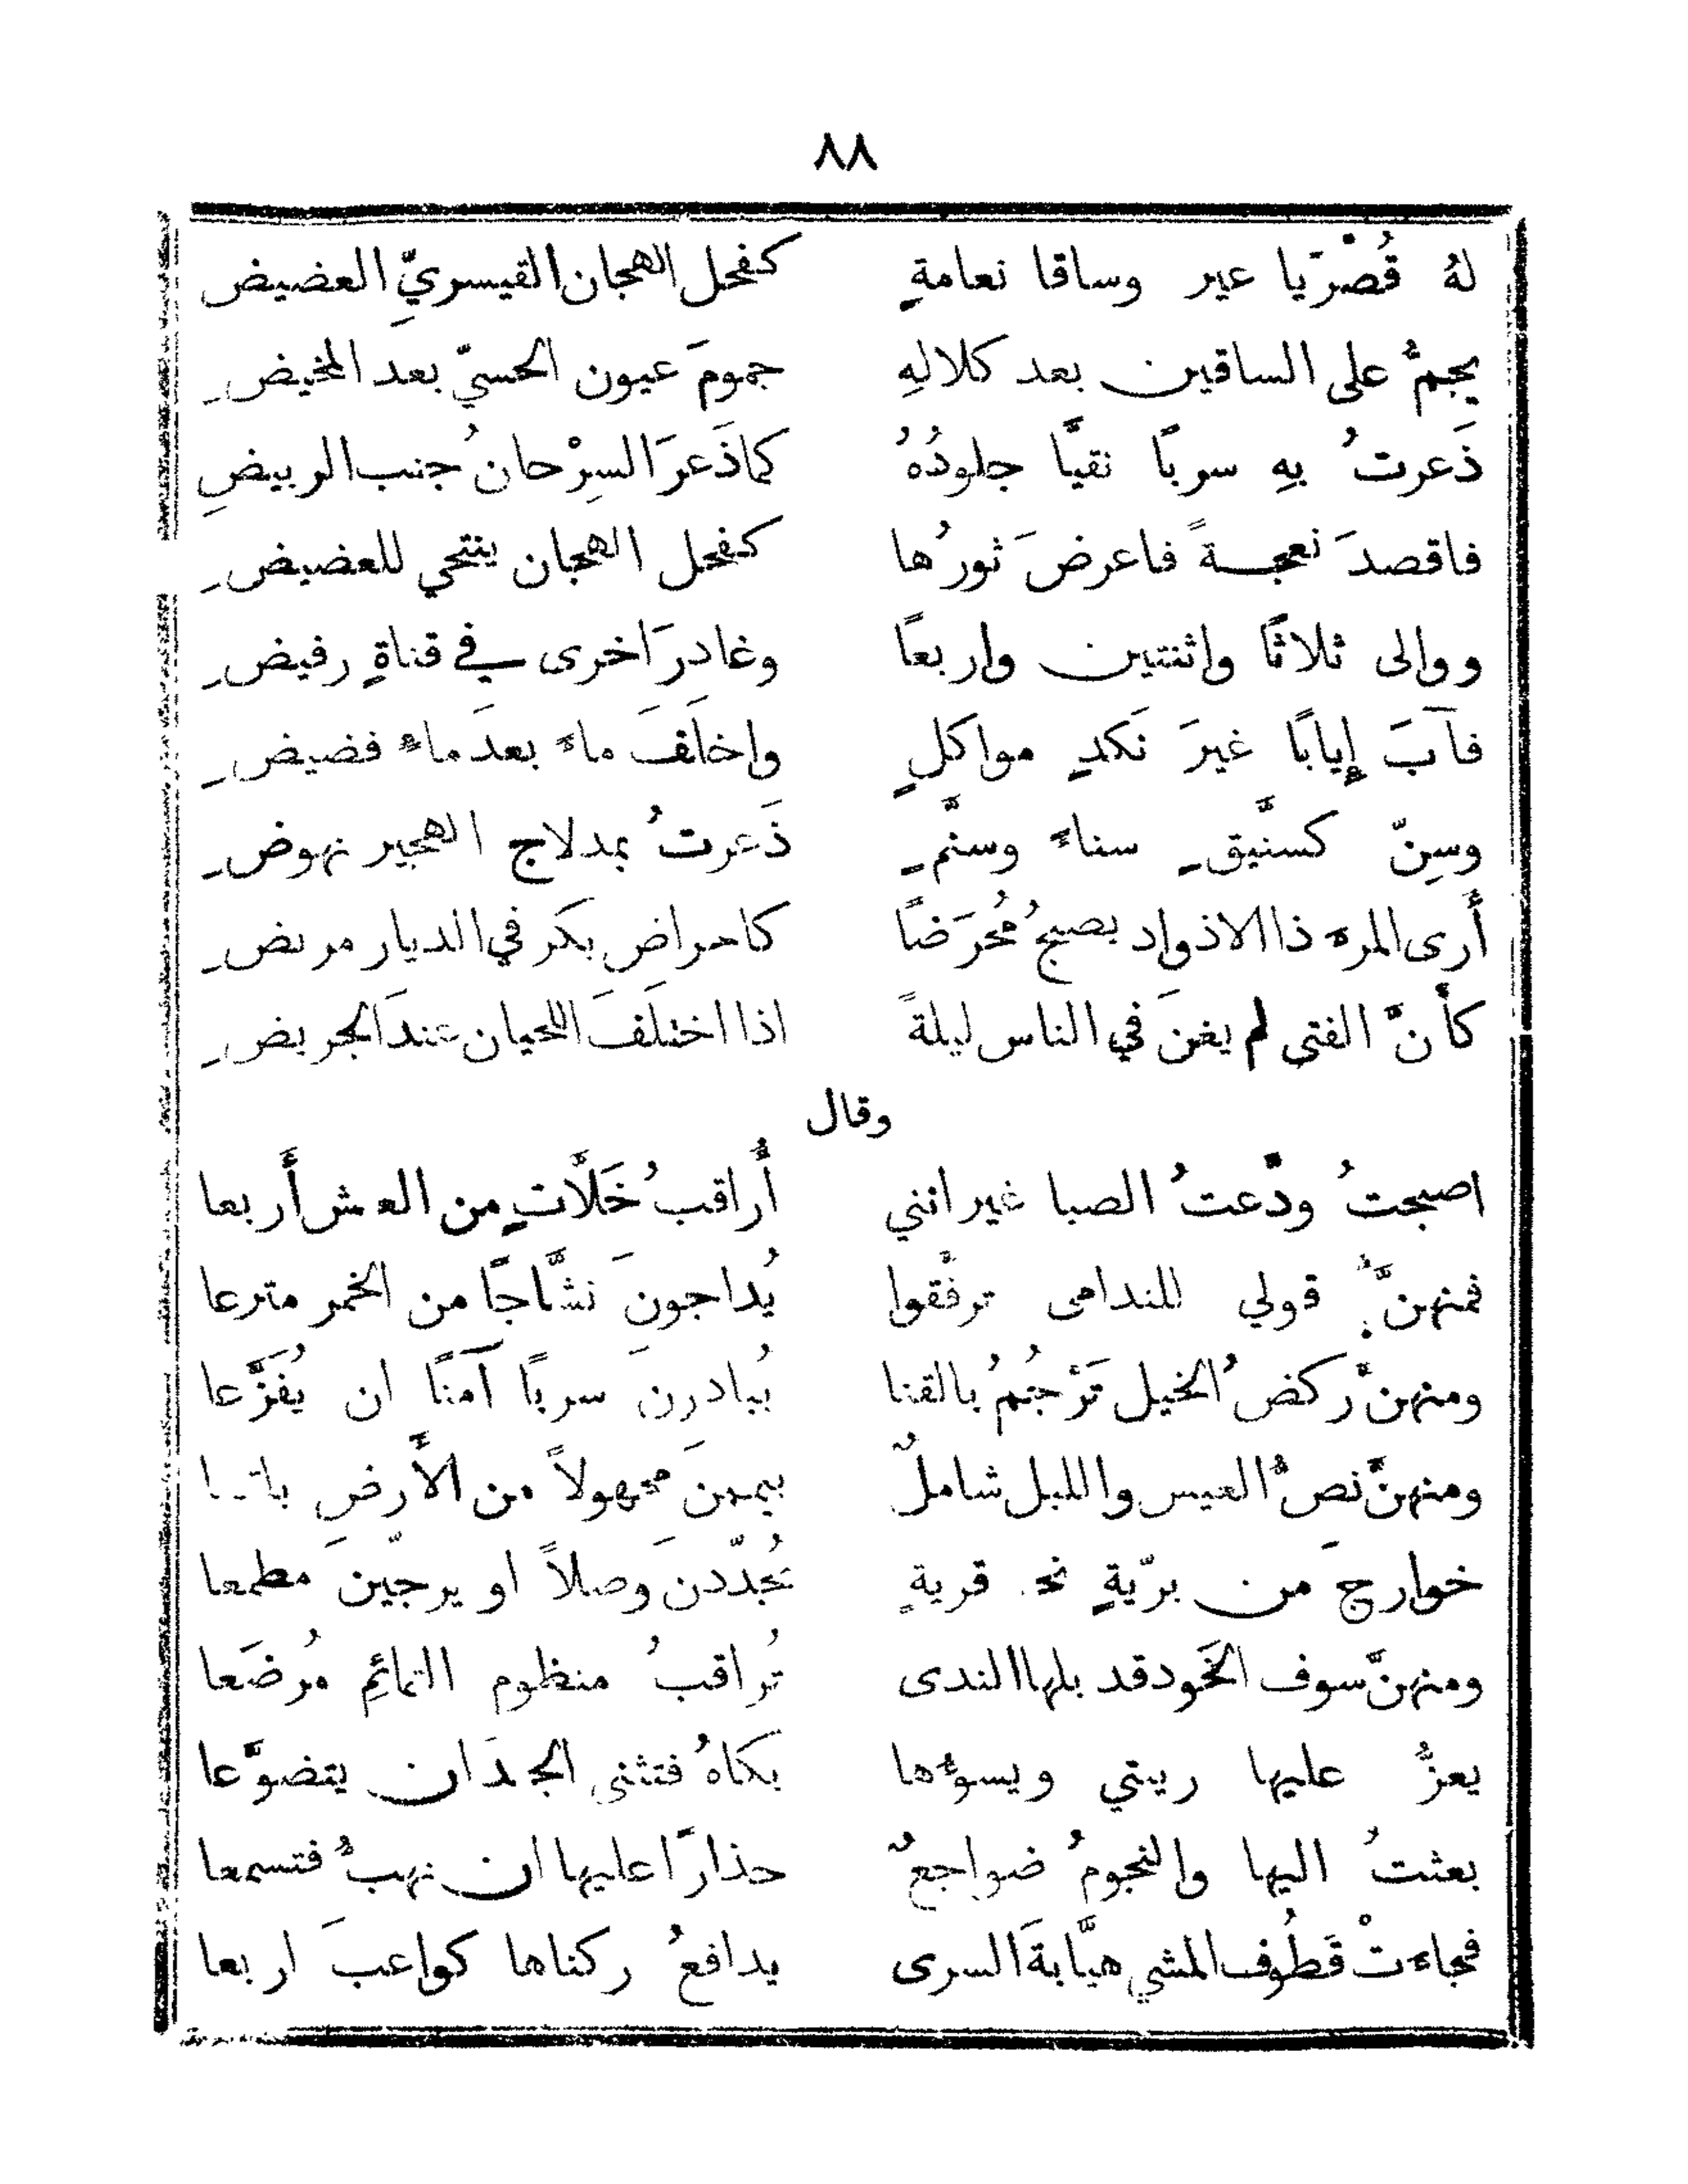 ٨٨
لهُ قُصْرَيا عير وساقا نعامةٍ كفحل الهجان القيسريِّ العضيض
يجمُّ على الساقين بعد كلالهِ جمومَ عيون الحسيّ بعد المخيضِ
ذَعرتُ بهِ سربًا نقيًّا جلودُهُ كما ذَعرَ السِرْحانُ جنب الربيضِ
فاقصدَ نعجةً فاعرضَ ثورُها كفحل الهجان ينتحي للعضيضِ
ووالى ثلاثًا واثنتين واربعًا وغادرَ اخرى في قناةٍ رفيضِ
فآبَ إِيابًا غيرَ نَكدٍ مواكلٍ واخلَفَ ماءً بعدَ ماءٍ فضيضِ
وسِنّ كسنَّيقٍ سناءً وسنَّمٍ ذَعرتُ بمدلاج الهجير نهوضِ
أَرى المرء ذا الاذواد يصبحُ مُحرَضًا كاحراض بكر في الديار مريضِ
كأَنَّ الفتى لم يغنَ في الناس ليلةً اذا اختلَفَ اللحيان عندَ الجريضِ
وقال
اصبحتُ ودَّعتُ الصبا غير انني أُراقبُ خَلّاتٍ من العيش أَربعا
فمنهنَّ قولي للندامى ترفَّقوا يُداجونَ نشَّاجًا من الخمر مترعا
ومنهنَّ ركضُ الخيل تَرْجُمُ بالقنا يُبادرنَ سربًا آمنًا ان يُفَزَّعا
ومنهنَّ نصُّ العيس والليل شاملٌ ييممنَ مجهولاً من الأَرضِ
خوارجَ من برّيةٍ نحو قريةٍ يُجدّدنَ وصلاً او يرجّينَ مطمعا
ومنهنَّ سوف الخَود قد بلها الندى تُراقبُ منظوم التمائمِ مُرضَعا
يعزُّ عليها ريبتي ويسوءُها بكاهُ فتثني الجيدَ ان يتضوَّعا
بعثتُ اليها والنجومُ ضواجعٌ حذارًا عليها ان تهبُّ فتسمعا
فجاءتْ قَطُوف المشي هيَّابةَ السرى يدافعُ ركناها كواعبَ اربعا